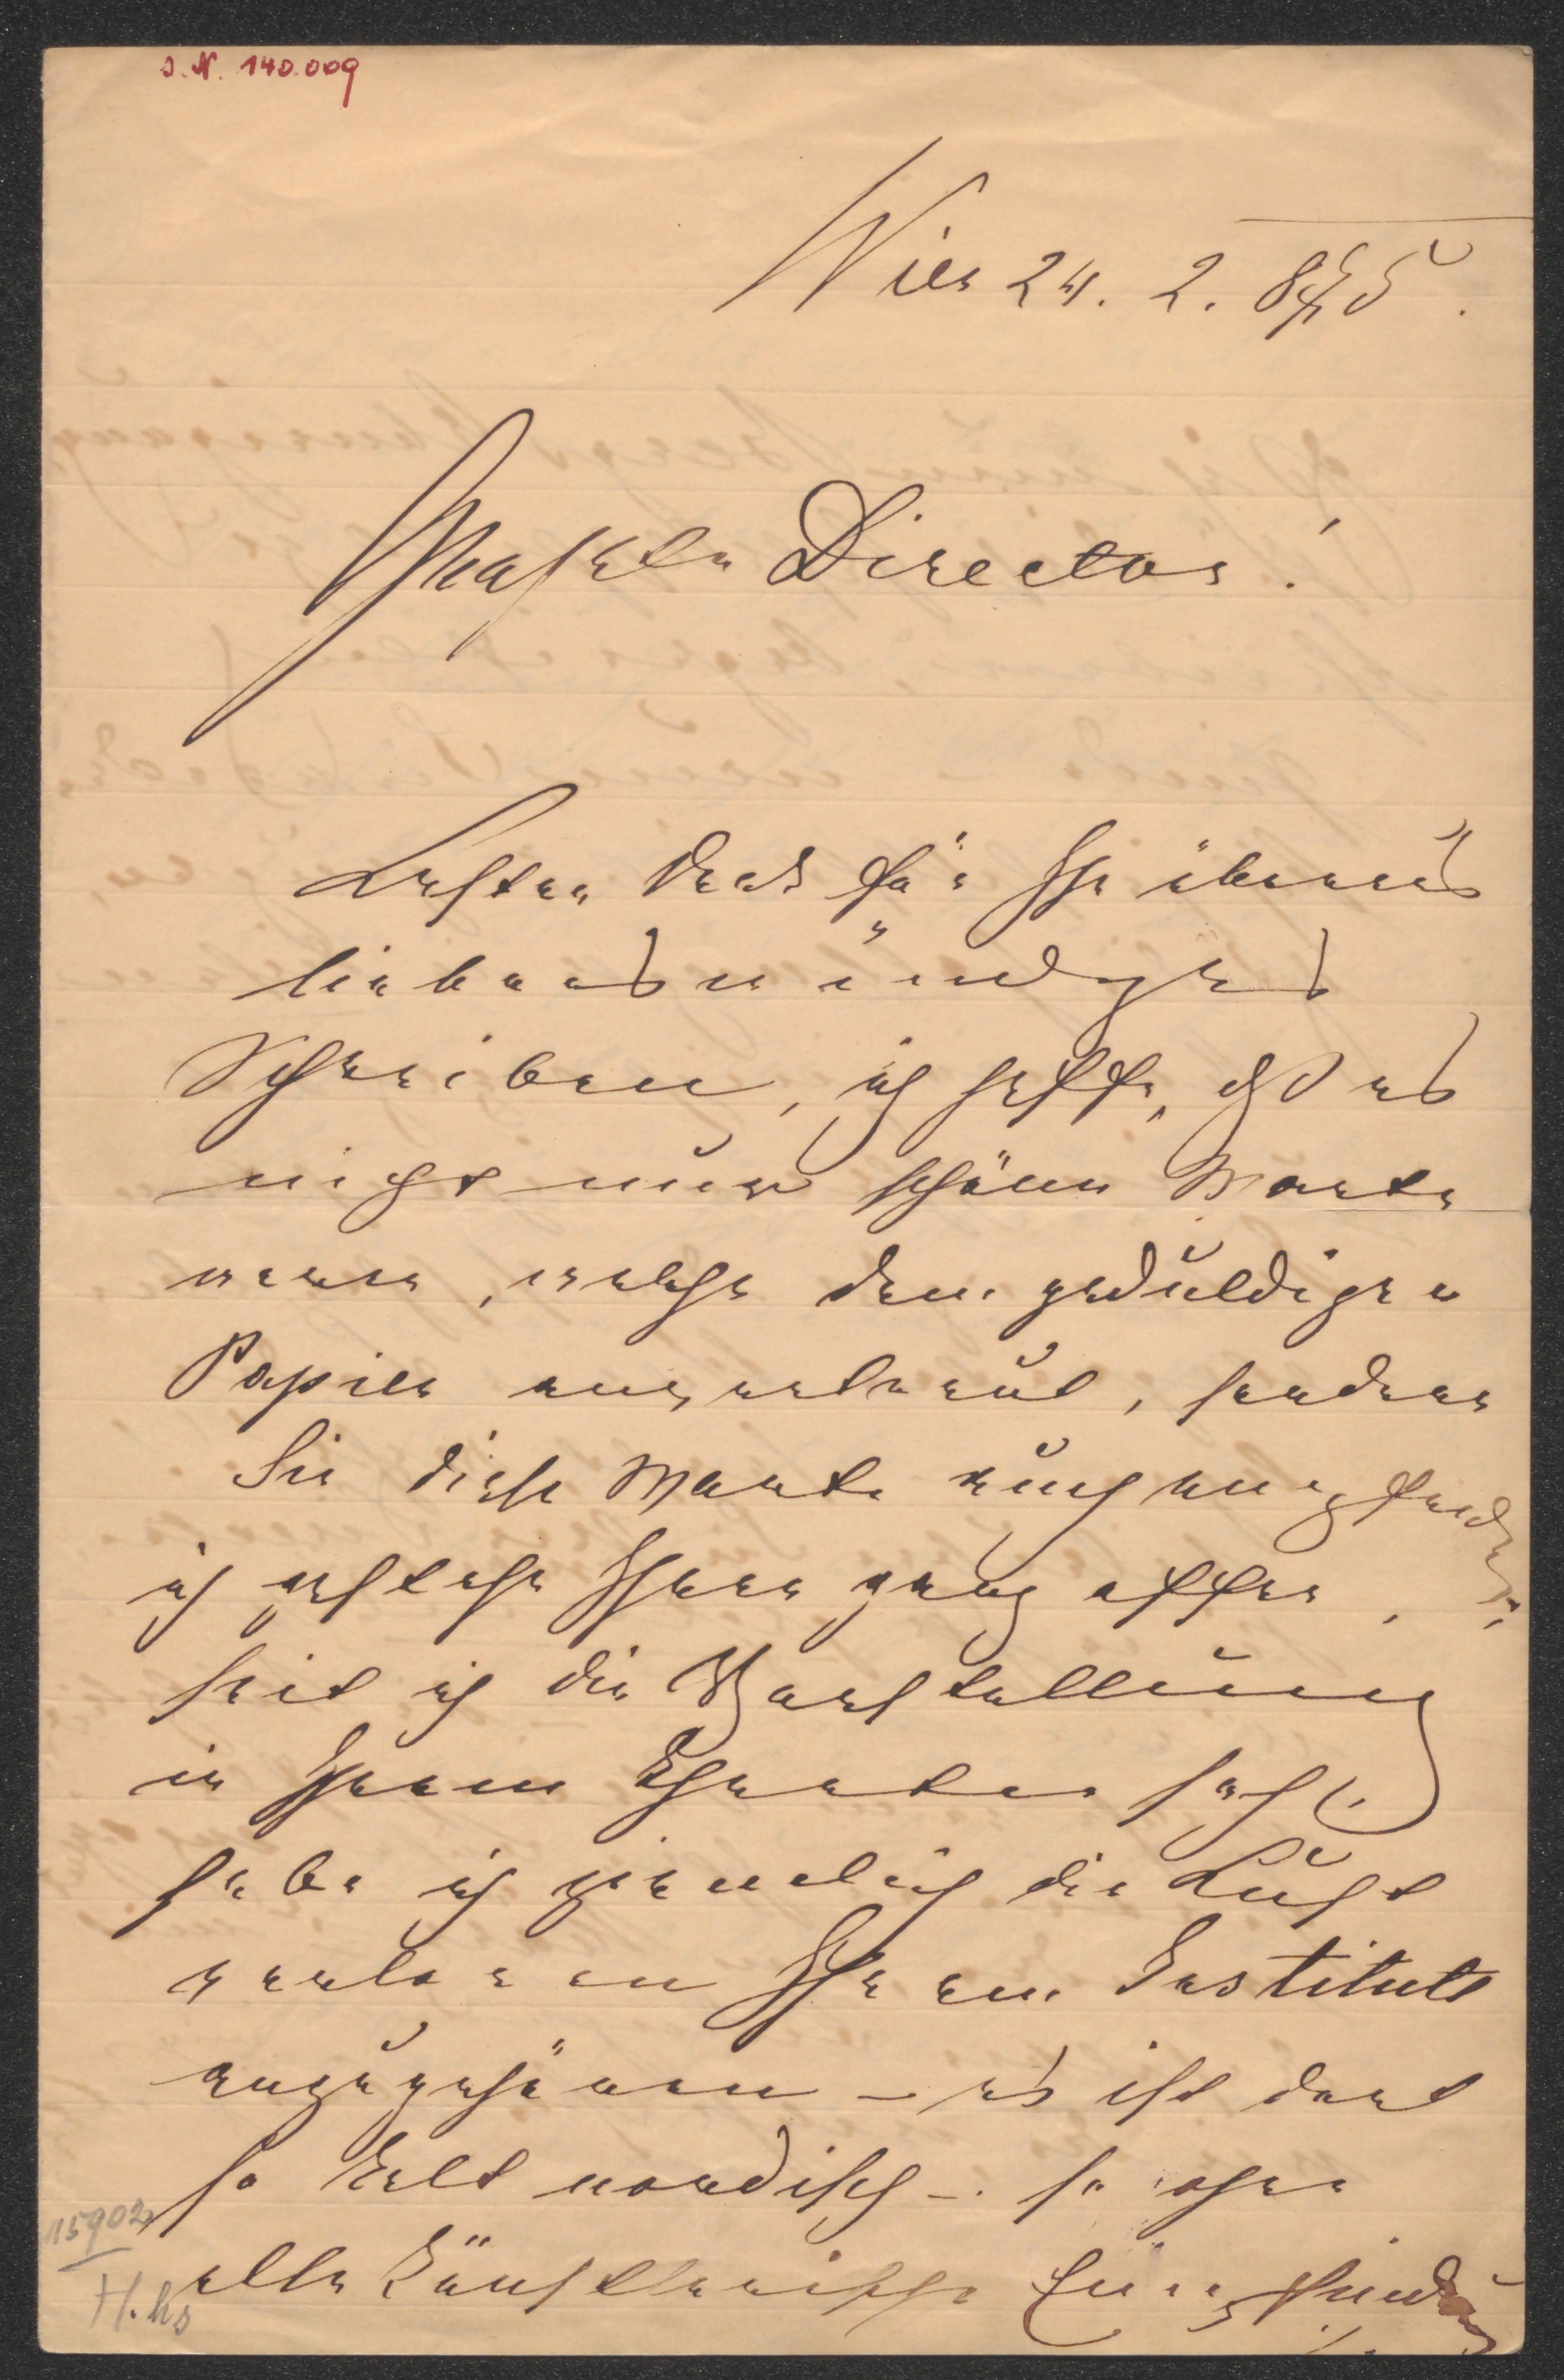 J. N. 140.009
Wien 24. 2. 875.
Director!
Besten Dank für Ihr überaus
liebenswürdiges
Schreiben, ich hoffe, daß es
nicht nur schöne Worte
waren, welche dem geduldigen
Papier anvertraut, sondern
Sie diese Worte auch empfinden,
ich gestehe Ihnen ganz offen,
seit ich die Vorstellung
in Ihrem Theater sah,
habe ich ziemlich die Lust
verloren Ihrem Institute
anzugehören – es ist dort
so kalt nordisch – so ohne
alle künstlerische Empfindung
15902
H. hs